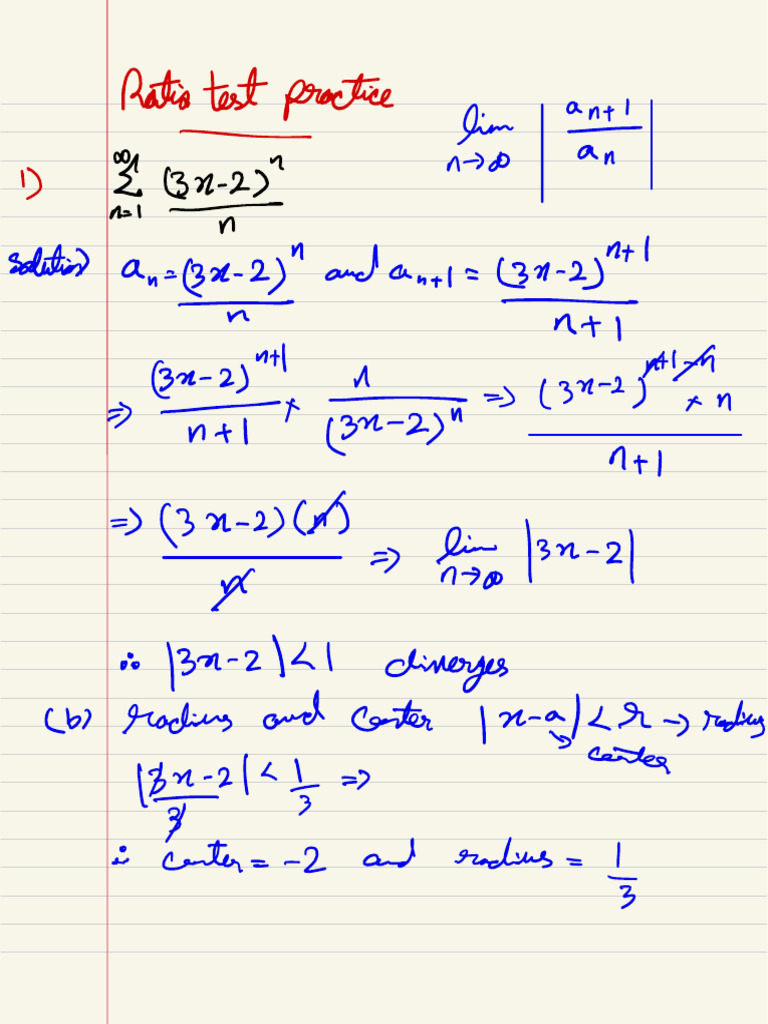 Ratio test practice
lim n→∞ | a_{n+1} / a_n |
1) ∑_{n=1}^{∞} (3x-2)^n / n
Solution) a_n = (3x-2)^n / n and a_{n+1} = (3x-2)^{n+1} / n+1
⇒ (3x-2)^{n+1} / n+1 × n / (3x-2)^n ⇒ (3x-2)^{n+1-n} × n / n+1
⇒ (3x-2)(n) / n ⇒ lim n→∞ |3x-2|
∴ |3x-2| < 1 diverges
(b) radius and center |x-a| < r → radius
center
|3x-2| / 3 < 1/3 ⇒
∴ center = -2 and radius = 1/3